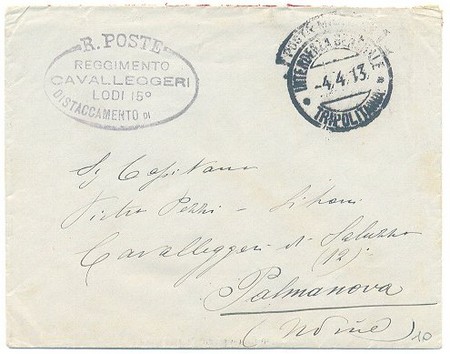 R. POSTE
REGGIMENTO
CAVALLEGGERI
LODI 15º
DISTACCAMENTO DI
POSTA MILITARE
INTENDENZA GENERALE
-4.4.13
TRIPOLITANIA
Sg Capitano
Pietro Pezzi -
Cavalleggeri di Saluzzo
(12)
Palmanova
(Udine)
10